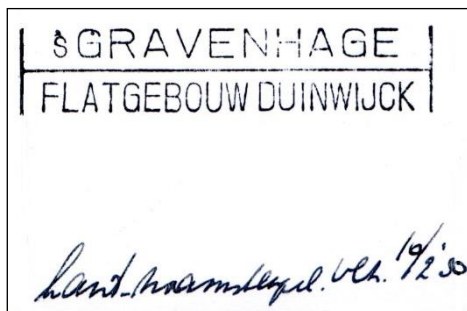 'sGRAVENHAGE
FLATGEBOUW DUINWIJCK
kant-naamstempel. 10/2 '50